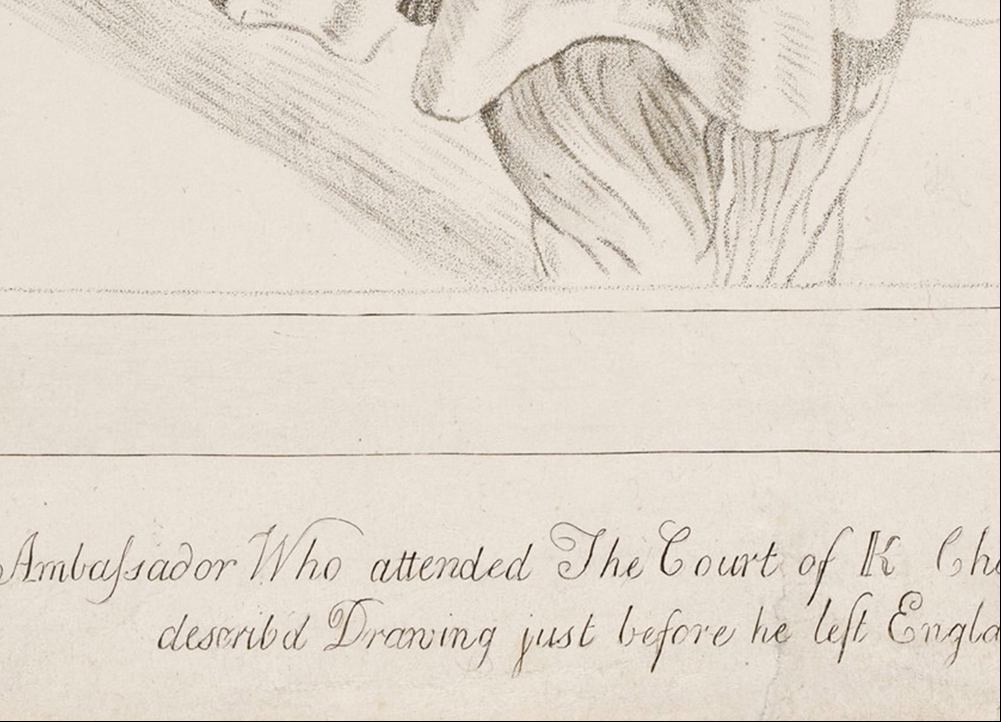 Ambaſsador Who attended The Court of K Cha
describ'd Drawing just before he left Engla